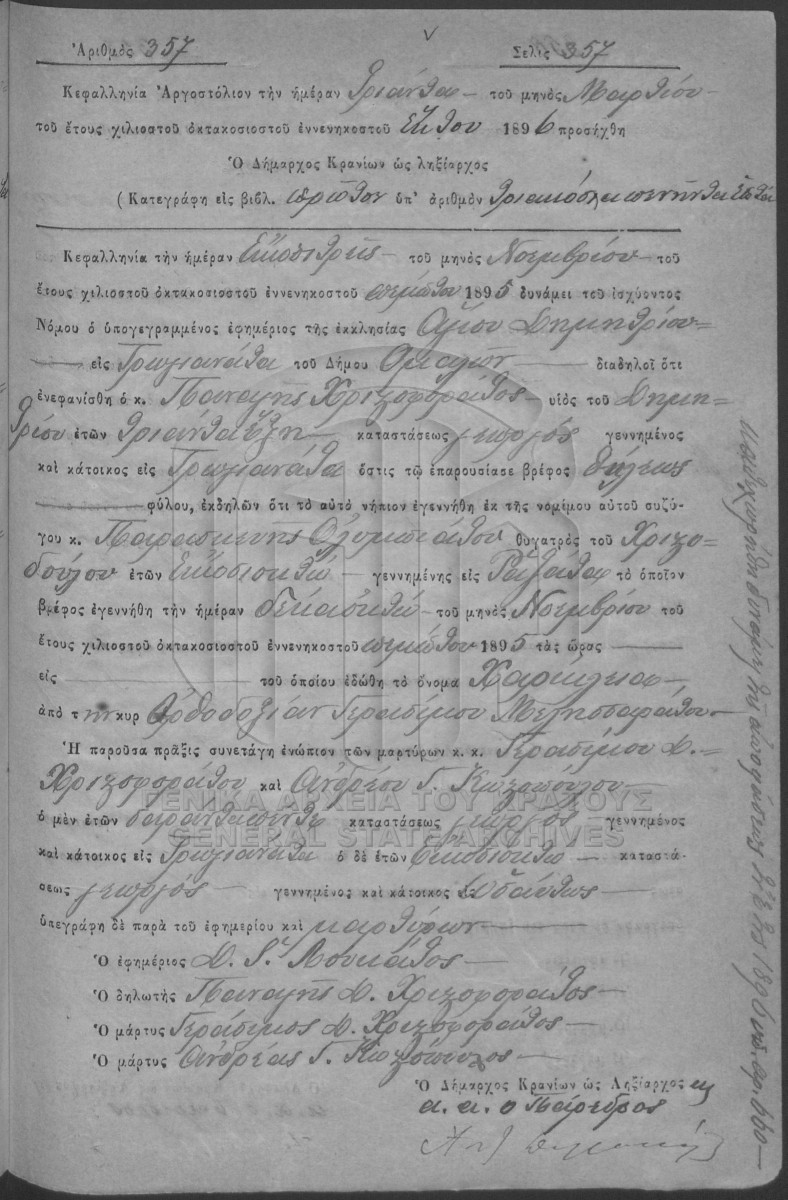 Ἀριθμὸς 357 Σελὶς 357
Κεφαλληνία Ἀργοστόλιον τὴν ἡμέραν τριάντα τοῦ μηνὸς Μαρτίου
τοῦ ἔτους χιλιοστοῦ ὀκτακοσιοστοῦ ἐννενηκοστοῦ ἕκτου 1896 προσήχθη
Ὁ Δήμαρχος Κρανίων ὡς ληξίαρχος
(Κατεγράφη εἰς βιβλ. πρῶτον ὑπ' ἀριθμὸν τριακόσια πενῆντα ἑπτά
Κεφαλληνία τὴν ἡμέραν Εἴκοσι τρεῖς τοῦ μηνὸς Νοεμβρίου τοῦ
ἔτους χιλιοστοῦ ὀκτακοσιοστοῦ ἐννενηκοστοῦ πέμπτου 1895 δυνάμει τοῦ ἰσχύοντος
Νόμου ὁ ὑπογεγραμμένος ἐφημέριος τῆς ἐκκλησίας Ἁγίου Δημητρίου
εἰς Τρωγιανάτα τοῦ Δήμου Ὁμαλῶν διαδηλοῖ ὅτι
ἐνεφανίσθη ὁ κ. Παναγῆς Χριζοφοράτος υἱὸς τοῦ Δημη-
τρίου ἐτῶν τριάντα ἕξη καταστάσεως γεωργός γεννημένος
καὶ κάτοικος εἰς Τρωγιανάτα ὅστις τῷ ἐπαρουσίασε βρέφος θήλεως
φύλου, ἐκδηλῶν ὅτι τὸ αὐτὸ νήπιον ἐγεννήθη ἐκ τῆς νομίμου αὐτοῦ συζύ-
γου κ. Παρασκευῆς Ὀλυμπιάτου θυγατρὸς τοῦ Χριζο-
δούλου ἐτῶν Εἴκοσιοκτώ γεννημένης εἰς Ραζάτα τὸ ὁποῖον
βρέφος ἐγεννήθη τὴν ἡμέραν δεκαοκτώ τοῦ μηνὸς Νοεμβρίου τοῦ
ἔτους χιλιοστοῦ ὀκτακοσιοστοῦ ἐννενηκοστοῦ πέμπτου 1895 τὰς ὥρας
εἰς τοῦ ὁποίου ἐδώθη τὸ ὄνομα Χαρίκλεια
ἀπὸ τὴν κυρ Ὀρθοδοξίαν Γερασίμου Μεταξάτου
Ἡ παροῦσα πρᾶξις συνετάγη ἐνώπιον τῶν μαρτύρων κ. κ. Γερασίμου Δ.
Χριζοφοράτου καὶ Ἀνδρέου Γ.
ὁ μὲν ἐτῶν σαράντα πέντε καταστάσεως γεωργός γεννημένος
καὶ κάτοικος εἰς Τρωγιανάτα ὁ δὲ ἐτῶν Εἰκοσιοκτώ καταστά-
σεως γεωργός γεννημένος καὶ κάτοικος εἰς ὡσαύτως
ὑπεγράφη δὲ παρὰ τοῦ ἐφημερίου καὶ μαρτύρων
Ὁ ἐφημέριος Δ. Γ. Λουκάτος
Ὁ δηλωτὴς Παναγῆς Δ. Χριζοφοράτος
Ὁ μάρτυς Γεράσιμος Δ. Χριζοφοράτος
Ὁ μάρτυς Ἀνδρέας Γ.
Ὁ Δήμαρχος Κρανίων ὡς Ληξίαρχος
α. α. ο Πάρεδρος
ΓΕΝΙΚΑ ΑΡΧΕΙΑ ΤΟΥ ΚΡΑΤΟΥΣ
GENERAL STATE ARCHIVES